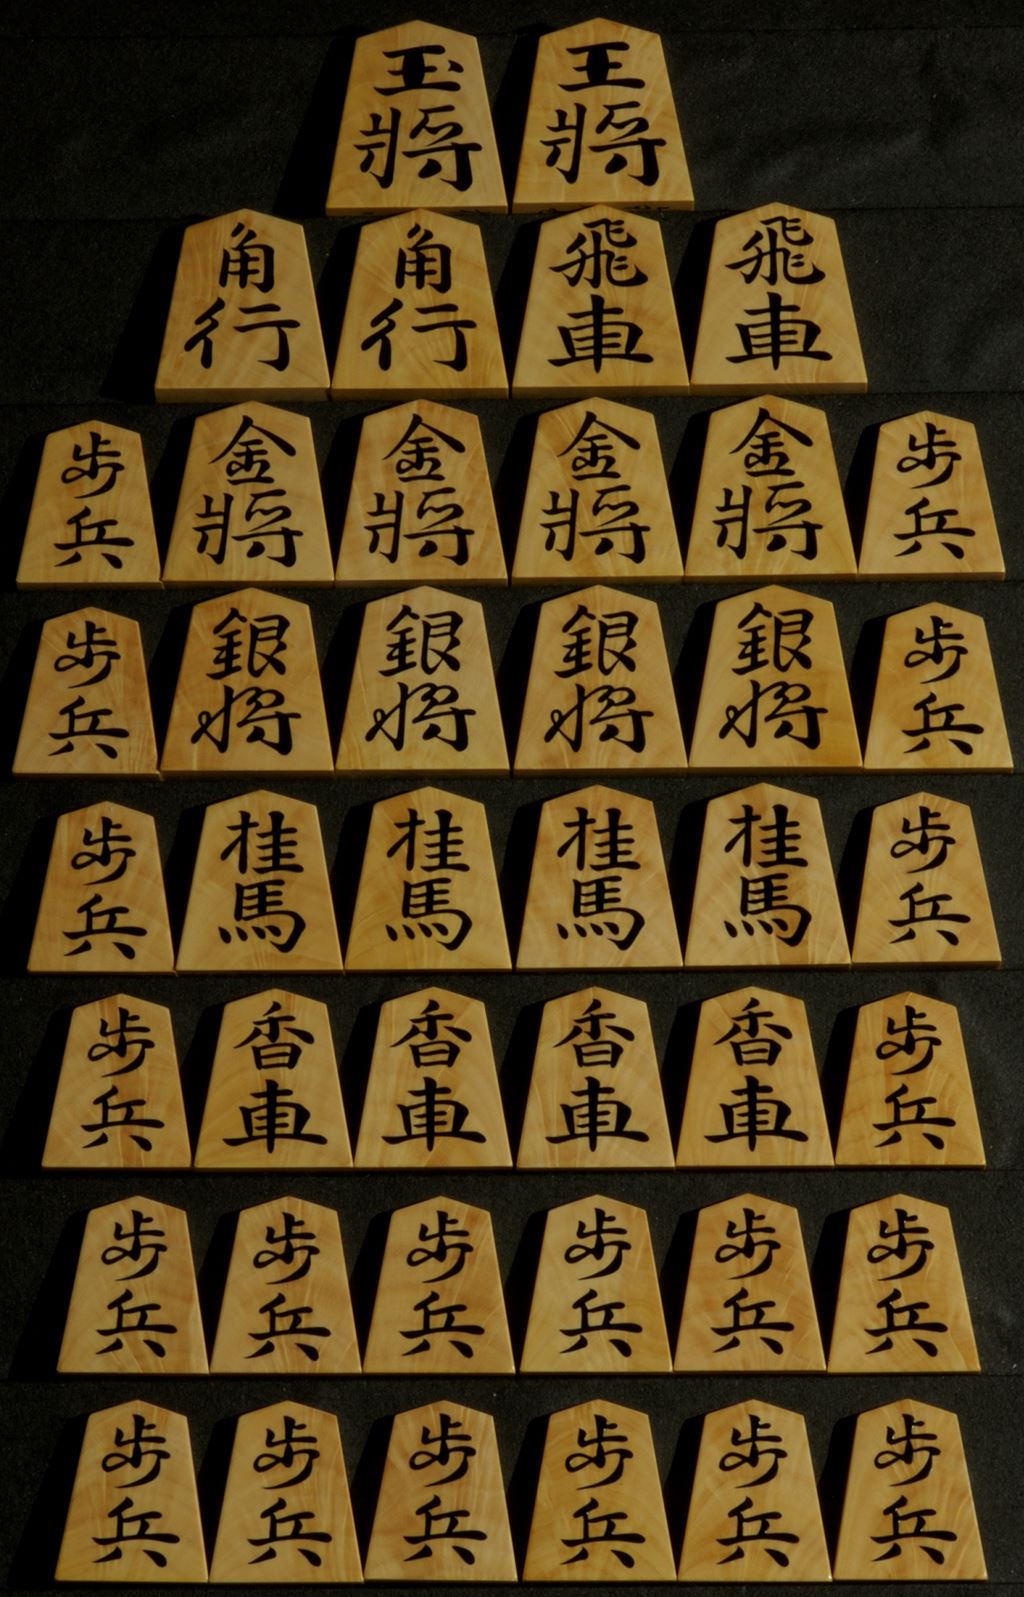 玉將 王將
角行 角行 飛車 飛車
歩兵 金將 金將 金將 金將 歩兵
歩兵 銀将 銀将 銀将 銀将 歩兵
歩兵 桂馬 桂馬 桂馬 桂馬 歩兵
歩兵 香車 香車 香車 香車 歩兵
歩兵 歩兵 歩兵 歩兵 歩兵 歩兵
歩兵 歩兵 歩兵 歩兵 歩兵 歩兵